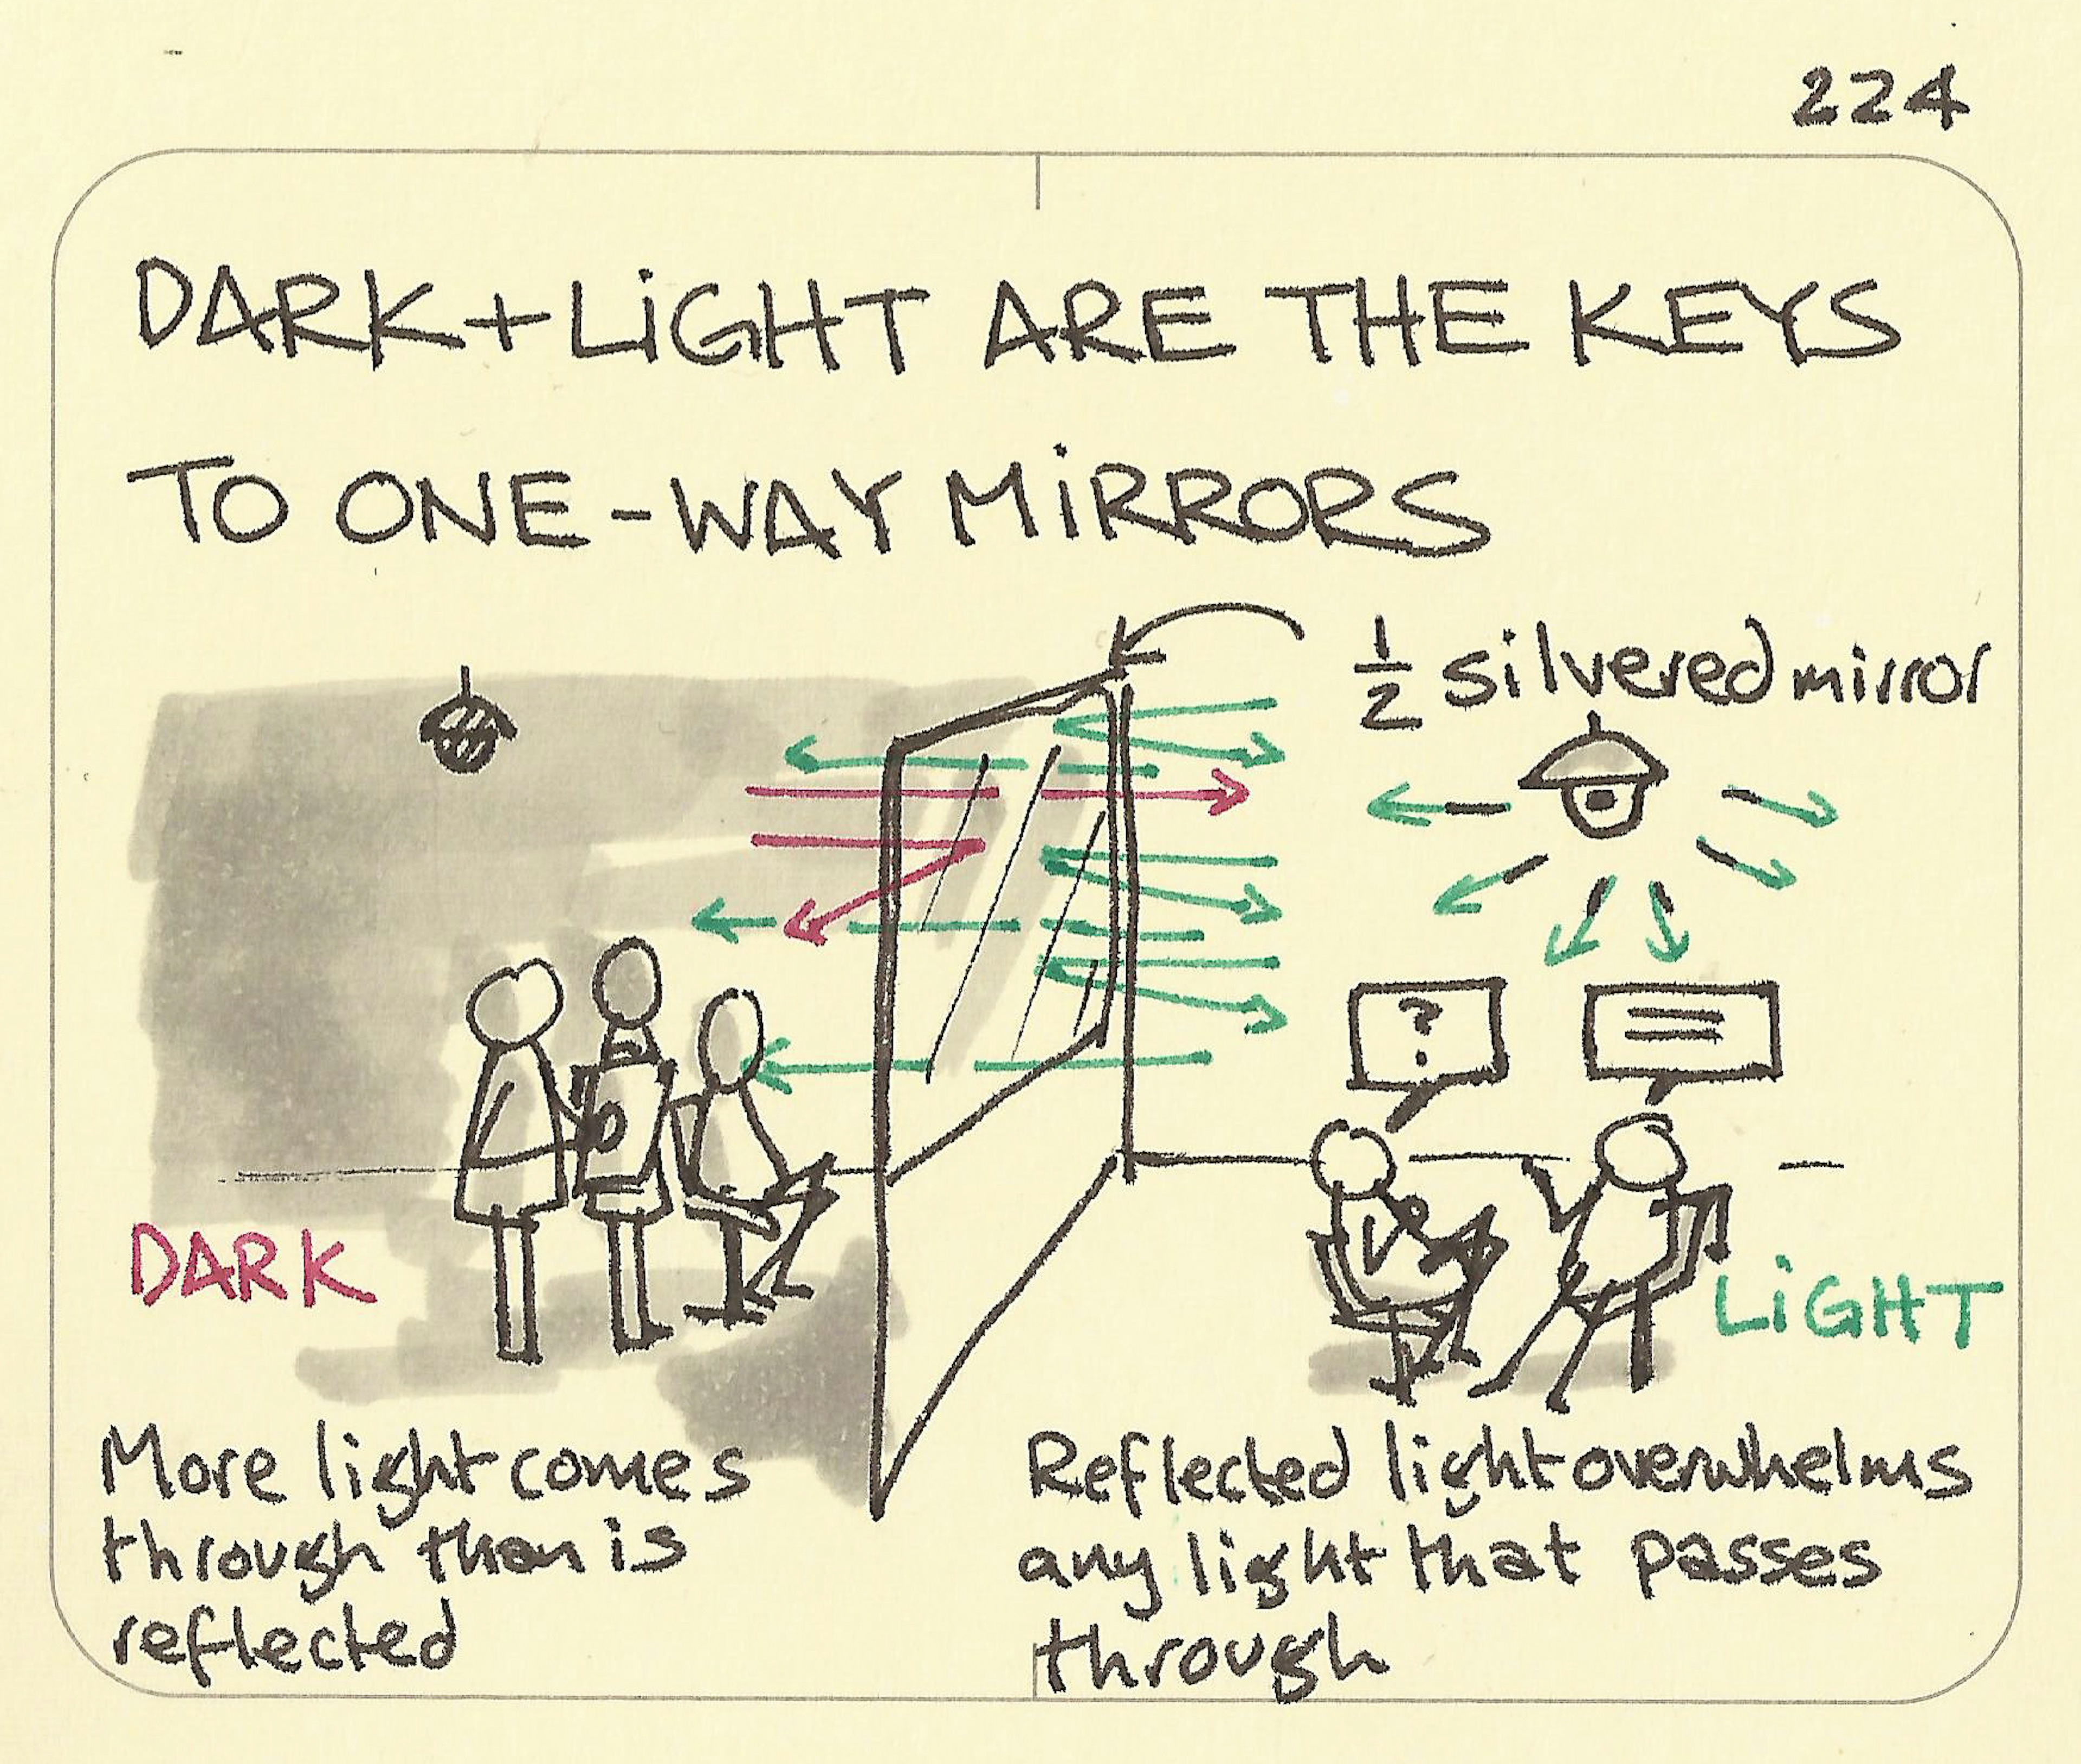 224
DARK + LiGHT ARE THE KEYS
TO ONE-WAY MiRRORS
1/2 silvered mirror
?
DARK
LiGHT
More light comes
through than is
reflected
Reflected light overwhelms
any light that passes
through